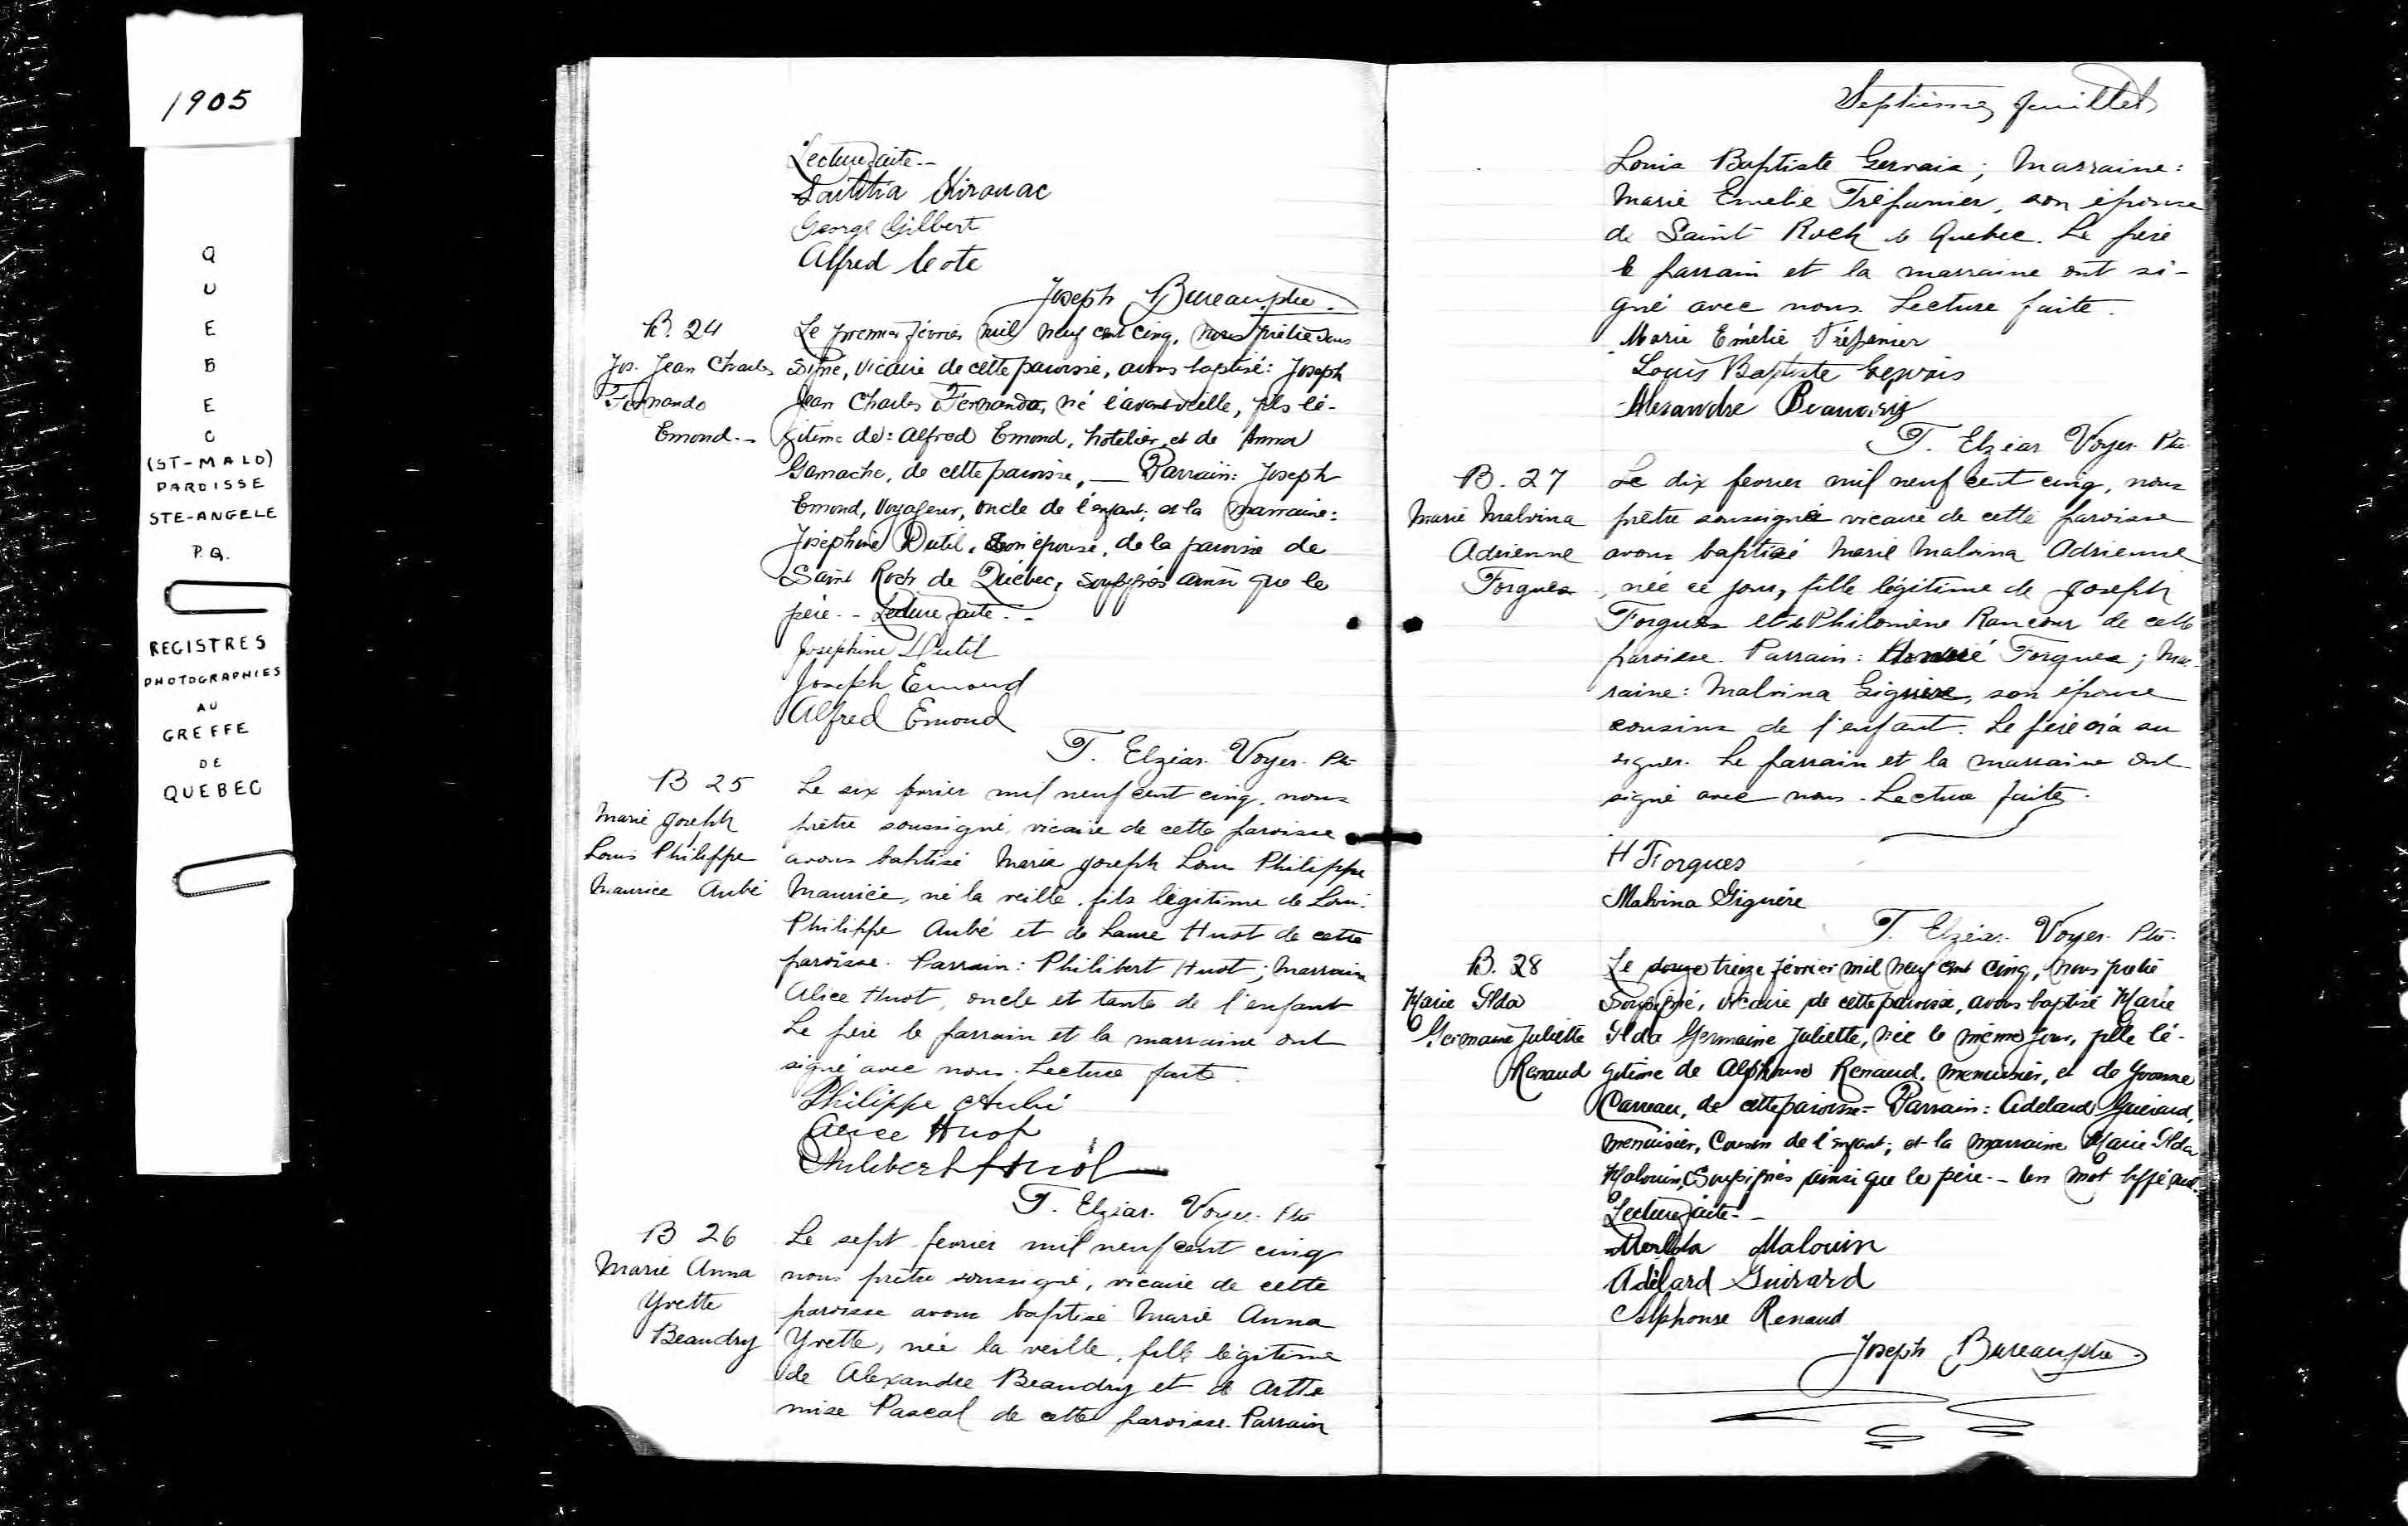 1905
QUEBEC
(ST-MALO)
PAROISSE
STE-ANGELE
P.Q.
REGISTRES
PHOTOGRAPHIES
AU
GREFFE
DE
QUEBEC
Lecture faite.-
Laetitia Kirouac
George Gilbert
Alfred Cote
Joseph Bureau, ptre.
B. 24
Jos. Jean Charles
Fernando
Emond.-
Le premier février mil neuf cent cinq, nous prêtre sous
signé, vicaire de cette paroisse, avons baptisé: Joseph
Jean Charles Fernando, né l'avant veille, fils lé-
gitime de: Alfred Emond, hotelier, et de Anna
Gamache, de cette paroisse, — Parrain: Joseph
Emond, Voyageur, oncle de l'enfant; et la marraine:
Josephine Dutil, son épouse, de la paroisse de
Saint Roch de Québec, soussignés ainsi que le
père.- Lecture faite.-
Josephine Dutil
Joseph Emond
Alfred Emond
T. Elzéar Voyer Ptre
B 25
Marie Joseph
Louis Philippe
Maurice Aubé
Le six fevrier mil neuf cent cinq, nous
prêtre soussigné, vicaire de cette paroisse
avons baptisé Marie Joseph Louis Philippe
Maurice, né la veille, fils légitime de Louis
Philippe Aubé et de Laure Huot de cette
paroisse. Parrain: Philibert Huot; Marraine
Alice Huot, oncle et tante de l'enfant
Le père le parrain et la marraine ont
signé avec nous. Lecture faite.
Philippe Aubé
Alice Huot
Philibert Huot
T. Elzéar Voyer Ptre
B 26
Marie Anna
Yvette
Beaudry
Le sept fevrier mil neuf cent cinq
nous prêtre soussigné, vicaire de cette
paroisse avons baptisé Marie Anna
Yvette, née la veille, fille légitime
de Alexandre Beaudry et de Arthé
mise Pascal de cette paroisse. Parrain
Septième feuillet
Louis Baptiste Gervais; Marraine:
Marie Emelie Trépanier, son épouse
de Saint Roch de Quebec. Le père
le parrain et la marraine ont si-
gné avec nous. Lecture faite.
Marie Emélie Trépanier
Louis Baptiste Gervais
Alexandre Beaudry
T. Elzéar Voyer Ptre
B. 27
Marie Malvina
Adrienne
Forgues
Le dix fevrier mil neuf cent cinq, nous
prêtre soussigné vicaire de cette paroisse
avons baptisé Marie Malvina Adrienne
, née ce jour, fille légitime de Joseph
Forgues et de Philomène Rancour de cette
paroisse. Parrain: Honoré Forgues; Mar-
raine: Malvina Giguère, son épouse
cousins de l'enfant. Le père n'a su
signer. Le parrain et la marraine ont
signé avec nous. Lecture faite.
H Forgues
Malvina Giguère
T. Elzéar Voyer Ptre.
B. 28
Marie Ilda
Germaine Juliette
Renaud
Le douze treize février mil neuf cent cinq, nous prêtre
soussigné, vicaire de cette paroisse, avons baptisé Marie
Ilda Germaine Juliette, née le même jour, fille lé-
gitime de Alphonse Renaud, menuisier, et de Yvonne
Carreau, de cette paroisse - Parrain: Adelard Guérard,
menuisier, cousin de l'enfant; et la marraine Marie Ilda
Malouin, soussignés ainsi que le père.- Un mot biffé
Lecture faite.-
Malouin
Adélard Guirard
Alphonse Renaud
Joseph Bureau, ptre